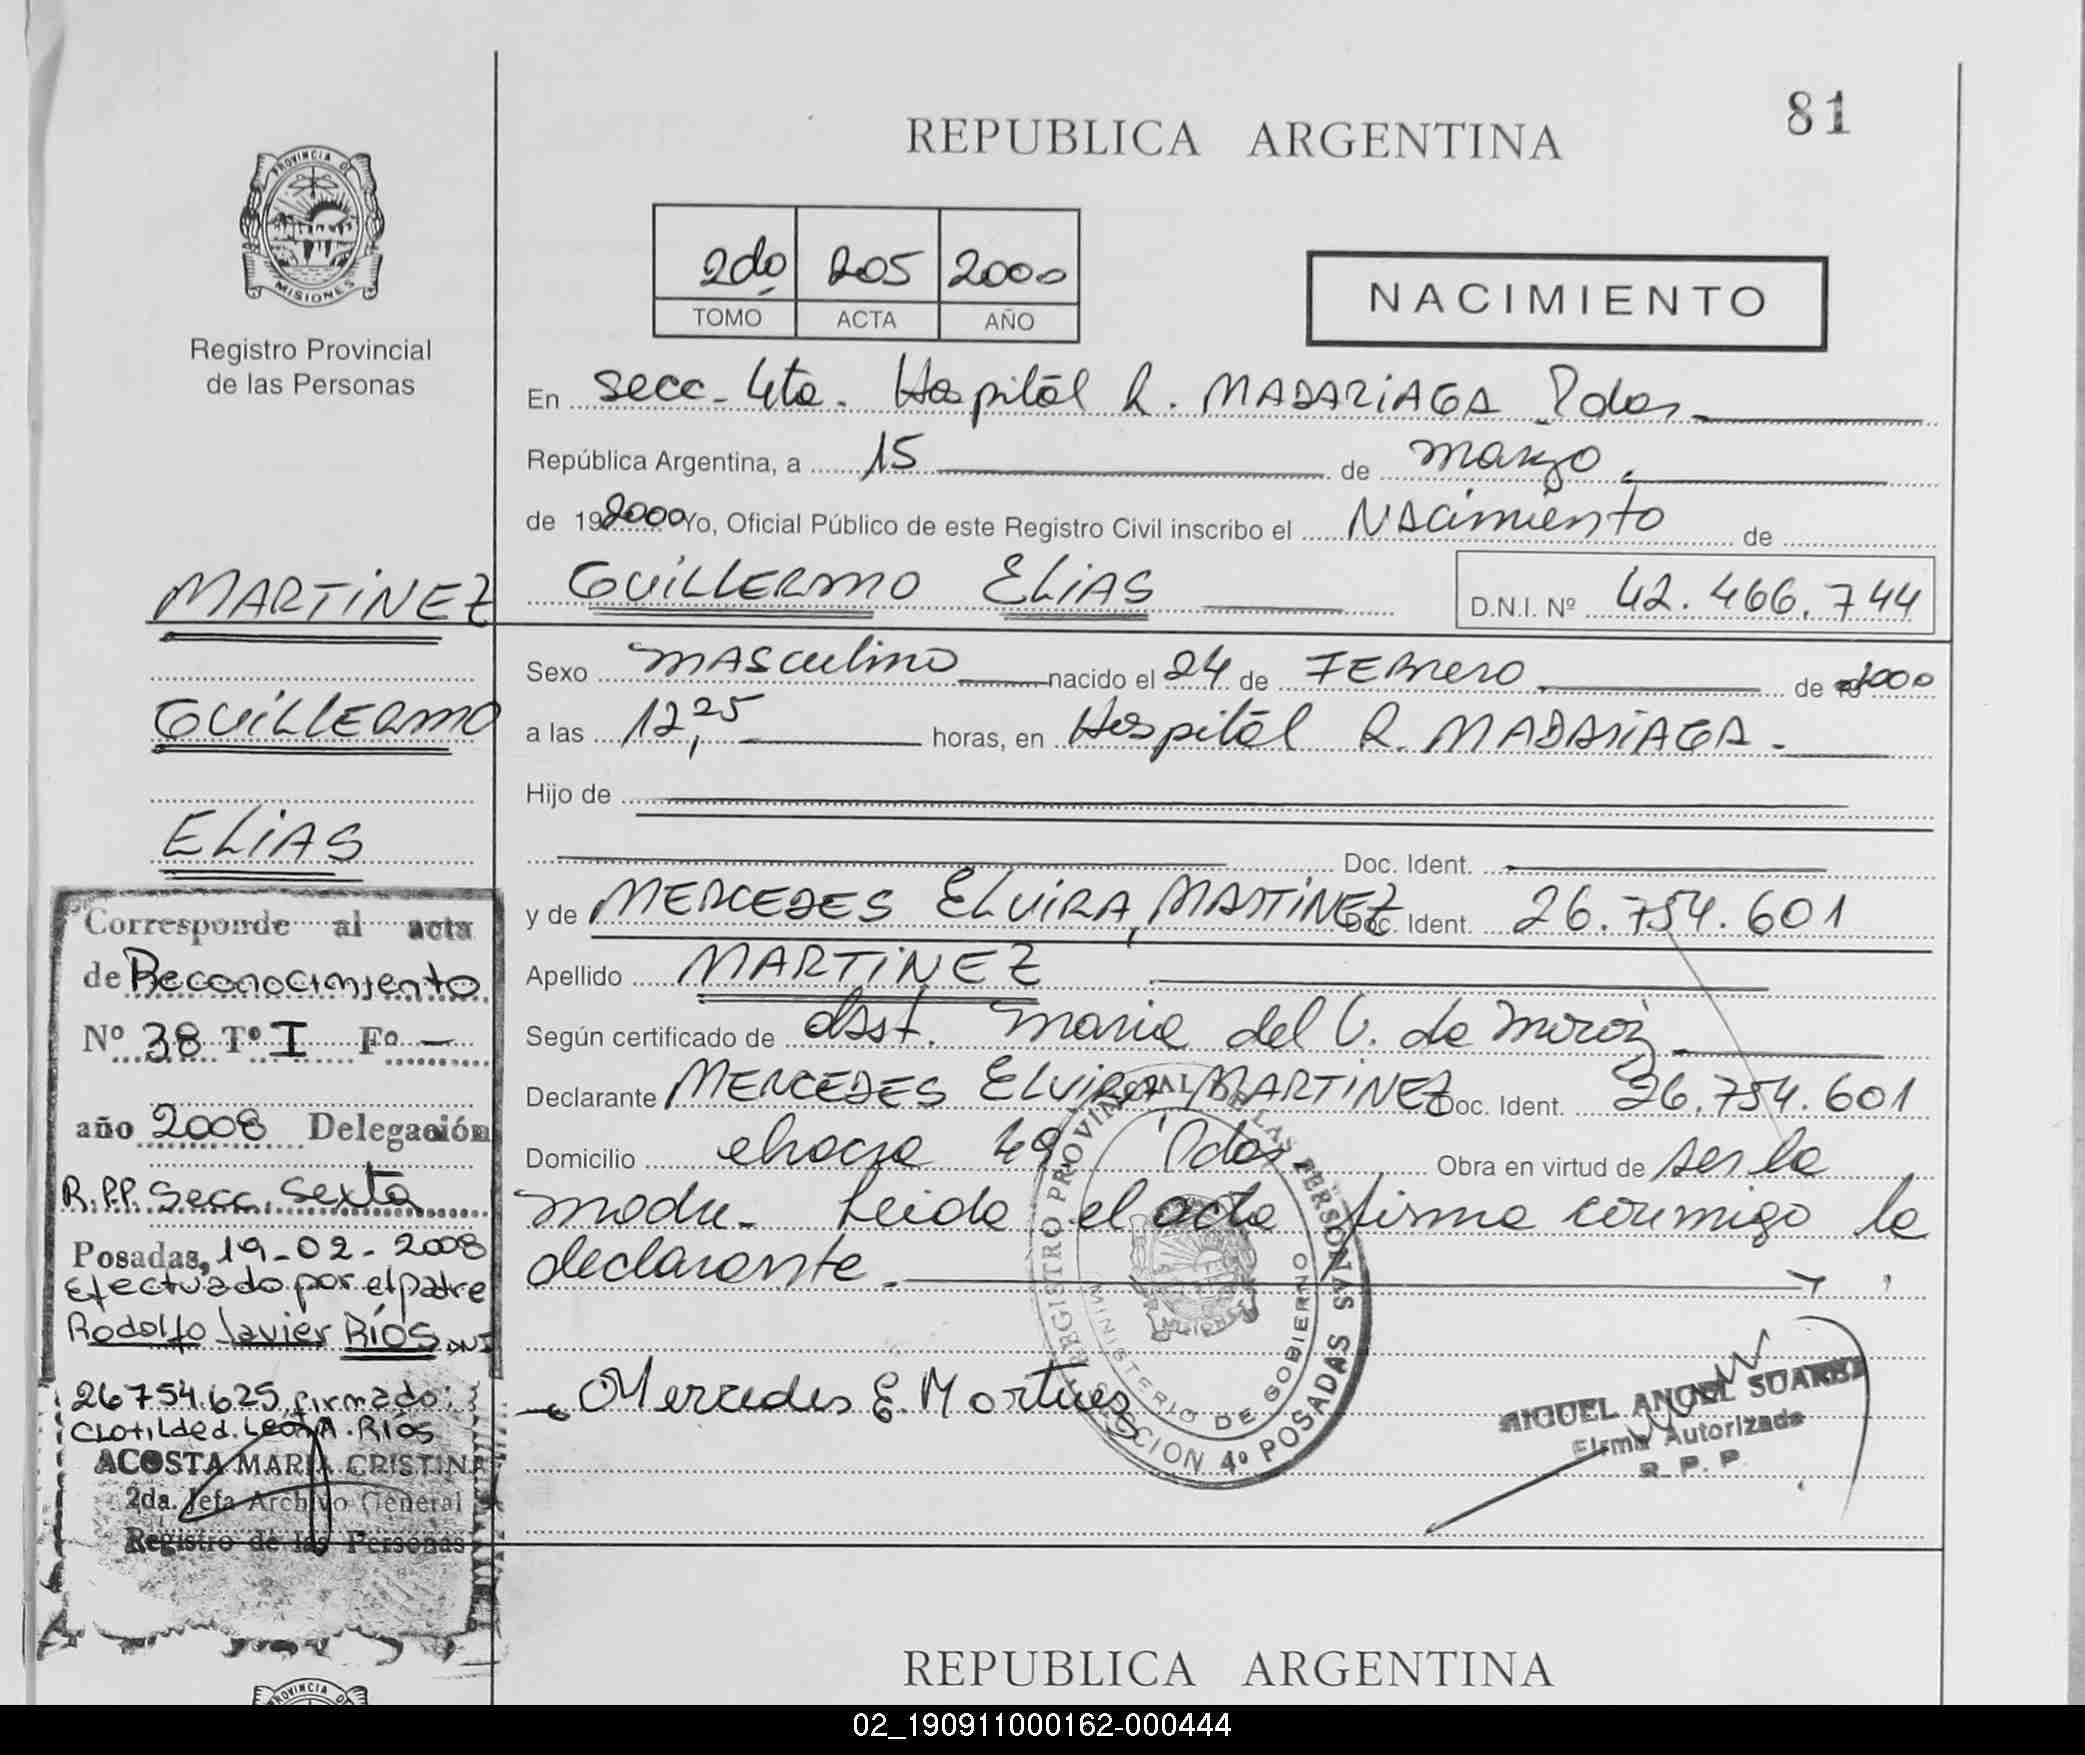 81
REPUBLICA ARGENTINA
PROVINCIA DE
MISIONES
Registro Provincial
de las Personas
2do 205 2000
TOMO ACTA AÑO
NACIMIENTO
En secc. 4ta. Hospital R. MADARIAGA Pdas
República Argentina, a 15 de marzo
de 19 2000 Yo, Oficial Público de este Registro Civil inscribo el Nacimiento de
GUILLERMO ELIAS
D.N.I. Nº 42.466.744
MARTINEZ
GUILLERMO
ELIAS
Sexo masculino nacido el 24 de FEBrero de 2000
a las 12,25 horas, en Hospital R. MADARIAGA.
Hijo de
Doc. Ident.
y de MERCEDES ELVIRA, MARTINEZ Doc. Ident. 26.754.601
Apellido MARTINEZ
Según certificado de obst. Maria del C. de
Declarante MERCEDES ELVIRA MARTINEZ Doc. Ident. 26.754.601
Domicilio 49 Pdas Obra en virtud de ser la
madre. Leida el acta firma conmigo la
declarante.
Mercedes E. Martinez
REGISTRO PROVINCIAL DE LAS PERSONAS
MINISTERIO DE GOBIERNO
SECCION 4º POSADAS
MIGUEL ANGEL SUAREZ
Firma Autorizada
R. P. P.
Corresponde al acta
de Reconocimiento
Nº 38 Tº I Fº -
año 2008 Delegación
R.P.P. Secc. Sexta
Posadas, 19-02-2008
Efectuado por el padre
Rodolfo Javier RÍOS DNI
26754.625 firmado:
Clotilde d. León A. Ríos
ACOSTA MARIA CRISTINA
2da. Jefa Archivo General
Registro de las Personas
REPUBLICA ARGENTINA
02_190911000162-000444